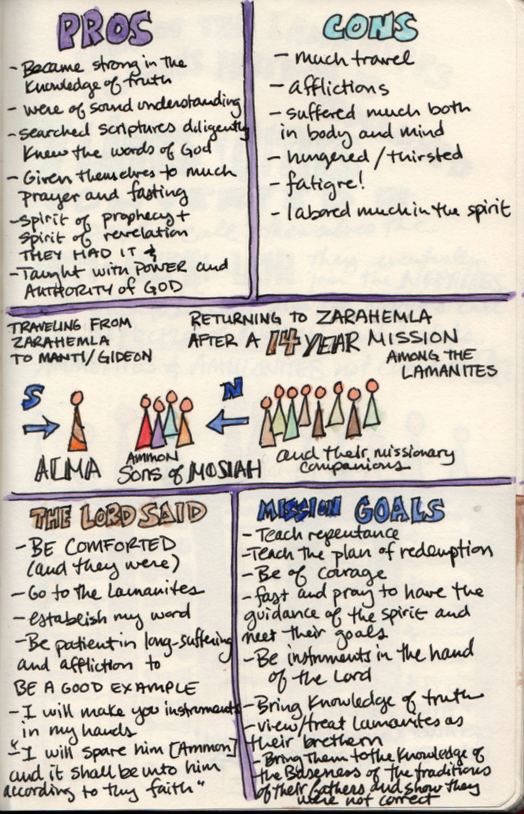 PROS
- Became strong in the
Knowledge of truth
- were of sound understanding
- searched scriptures diligently
Knew the words of God
- Given themselves to much
prayer and fasting
- spirit of prophecy +
spirit of revelation
THEY HAD IT &
- Taught with POWER and
AUTHORITY of GOD
CONS
- much travel
- afflictions
- suffered much both
in body and mind
- hungered / thirsted
- fatigre!
- labored much in the spirit
TRAVELING FROM
ZARAHEMLA
TO MANTI/GIDEON
RETURNING TO ZARAHEMLA
AFTER A 14 YEAR MISSION
AMONG THE
LAMANITES
S
N
ALMA
AMMON
Sons of MOSIAH
and their missionary
companions
THE LORD SAID
- BE COMFORTED
(and they were)
- Go to the Lamanites
- establish my word
- Be patient in long-suffering
and affliction to
BE A GOOD EXAMPLE
- I will make you instruments
in my hands
- "I will spare him [Ammon]
and it shall be unto him
according to thy faith"
MISSION GOALS
- Teach repentance
- Teach the plan of redemption
- Be of courage
- fast and pray to have the
guidance of the spirit and
meet their goals
- Be instruments in the hand
of the Lord
- Bring Knowledge of truth
- view/treat Lamanites as
their brethern
- Bring Them to the Knowledge of
the Baseness of the traditions
of their fathers and show they
were not correct